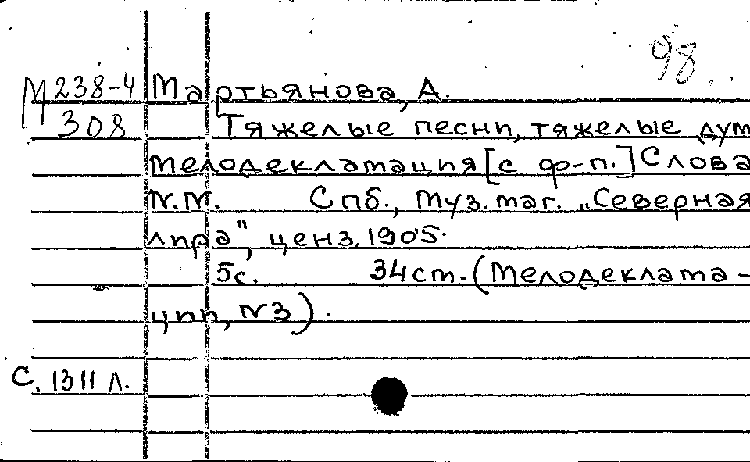 98
М 238-4 Мартьянова, А.
308 Тяжелые песни, тяжелые дум
Мелодекламация [с ф-п.] Слова
М.М. Спб., Муз. маг. „Северная
лира", ценз. 1905.
5с. 34 см. (Мелодеклама-
ции, №3).
С. 1311 л.